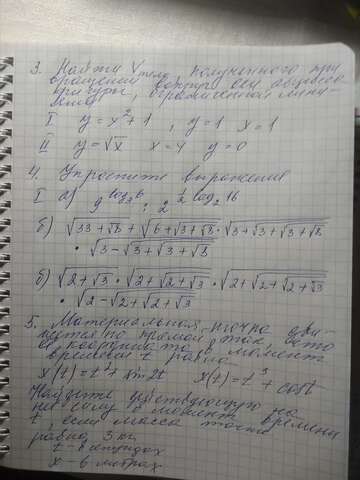 3. Найти V тела, полученного при
вращении вокруг оси абсцисс
фигуры, ограниченной лини-
ями
I y = x² + 1 , y = 1 x = 1
II y = √x x = 4 y = 0
4. Упростите выражение
I а) 9^{log₃ 6} : 2^{½ log₂ 16}
б) √(33 + √8) · √(6 + √(3 + √8)) · √(3 + √(3 + √(3 + √8)))
· √(3 − √(3 + √(3 + √8)))
б) √(2 + √3) · √(2 + √(2 + √3)) · √(2 + √(2 + √(2 + √3)))
· √(2 − √(2 + √(2 + √3)))
5. Материальная точка дви-
жется по прямой так, что
её координата в момент
времени t равна
x(t) = t² + sin 2t x(t) = t³ + cos t
Найдите действующую на
неё силу в момент времени
t, если масса точки
равна 3 кг
t – в секундах
x – в метрах